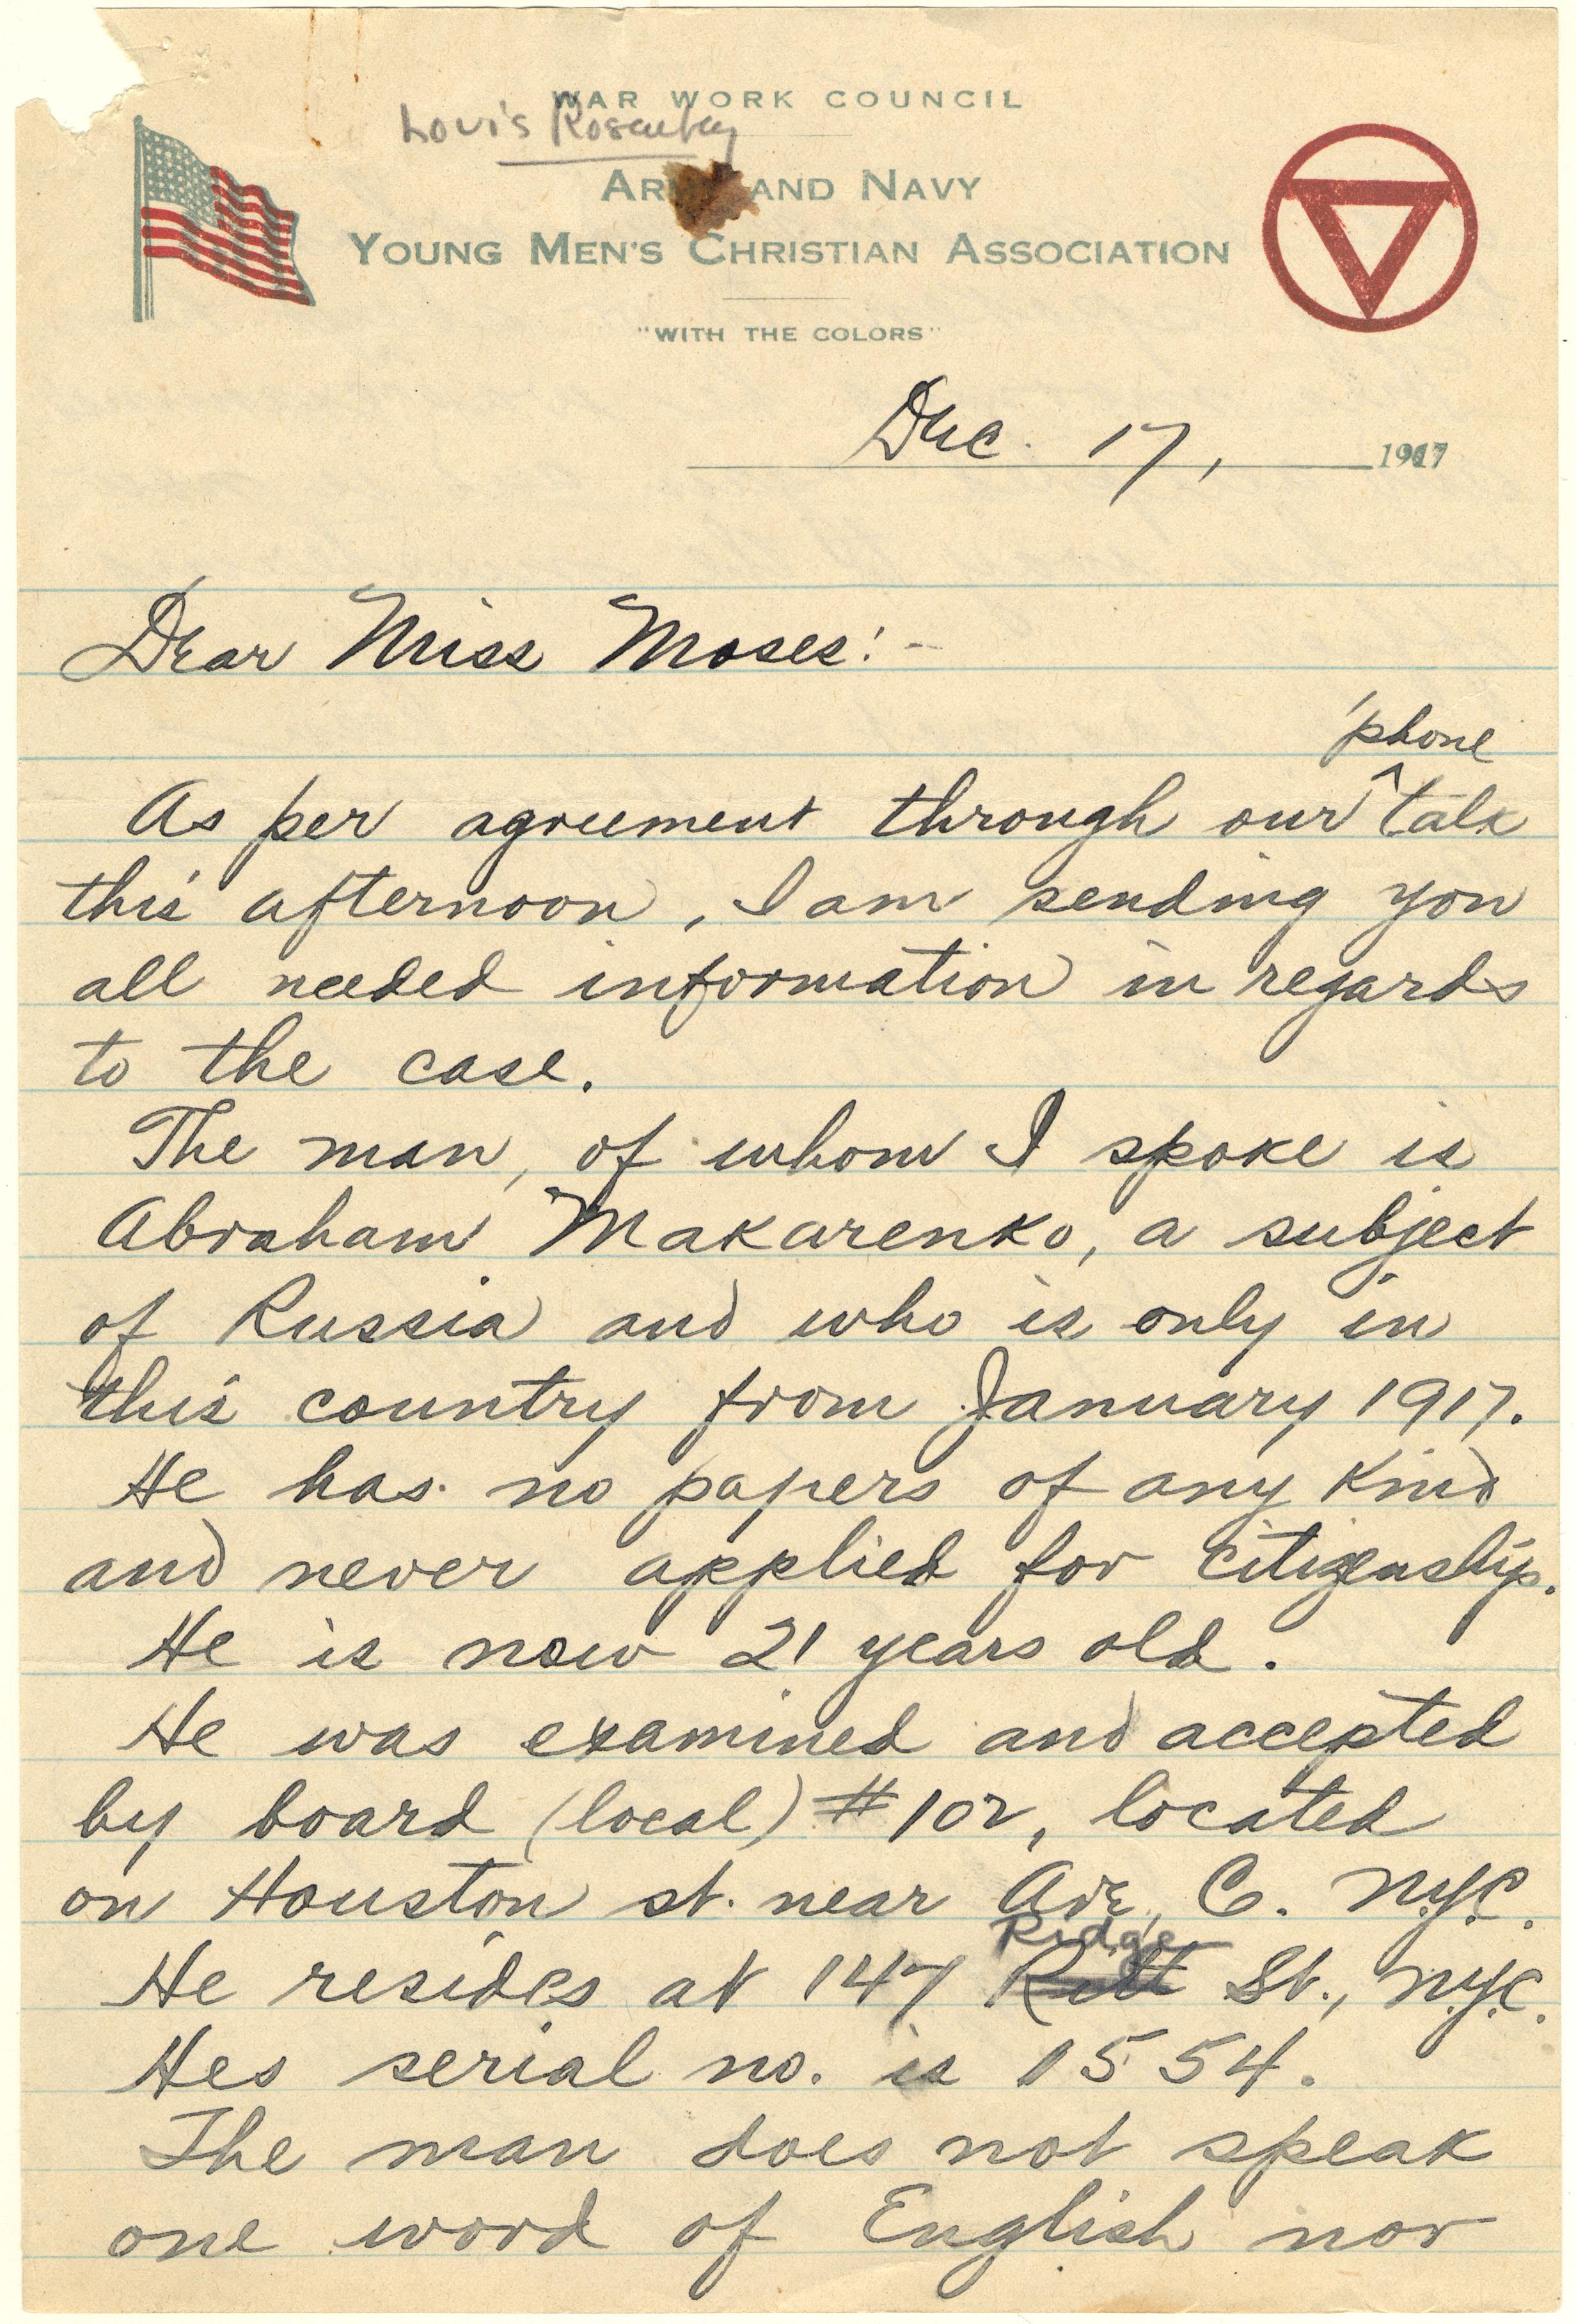 WAR WORK COUNCIL
Louis Rosenberg
ARMY AND NAVY
YOUNG MEN'S CHRISTIAN ASSOCIATION
"WITH THE COLORS"
Dec. 17, 1917
Dear Miss Moses:-
'phone
As per agreement through our ^ talk
this afternoon, I am sending you
all needed information in regards
to the case.
The man, of whom I spoke is
Abraham Makarenko, a subject
of Russia and who is only in
this country from January 1917.
He has no papers of any kind
and never applied for citizenship.
He is now 21 years old.
He was examined and accepted
by board (local) #102, located
on Houston st. near Ave. C. N.Y.C.
Ridge
He resides at 147 St., N.Y.C.
Hes serial no. is 1554.
The man does not speak
one word of English nor